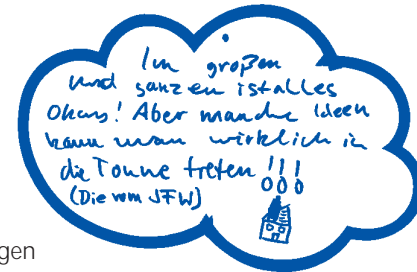 Im großen
und ganzen ist alles
Okay! Aber manche Ideen
kann man wirklich in
die Tonne treten !!!
(Die vom JFW)
gen